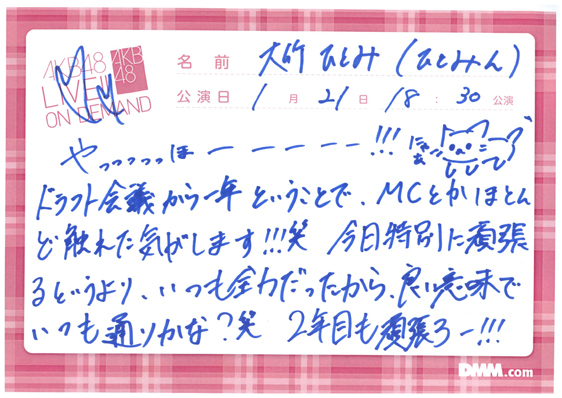 AKB48
LIVE!!
ON DEMAND
AKB
48
名前 大竹 ひとみ (ひとみん)
公演日 1月 21日 18:30公演
やっっっっっほーーーーー!!!
にゃあ
ドラフト会議から一年ということで、MCとかほとん
ど触れた気がします!!!笑 今日特別に頑張
るというより、いつも全力だったから、良い意味で
いつも通りかな?笑 2年目も頑張ろー!!!
DMM.com